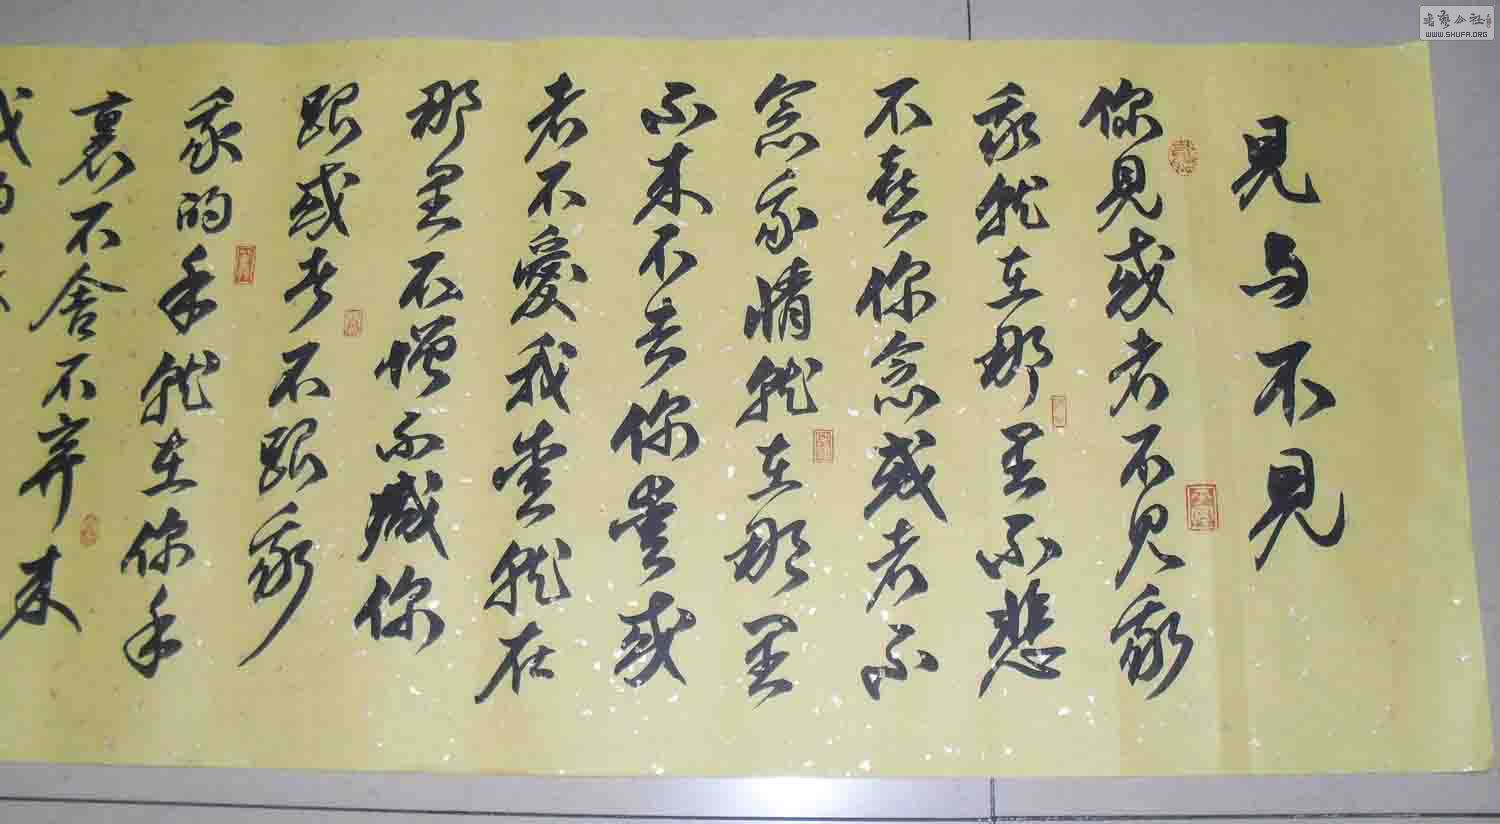 見与不見
你見或者不見我
我就在那里不悲
不喜你念或者不
念我情就在那里
不来不去你爱或
者不愛我爱就在
那里不增不减你
跟或者不跟我
我的手就在你手
裏不舍不弃来
书艺公社
WWW.SHUFA.ORG